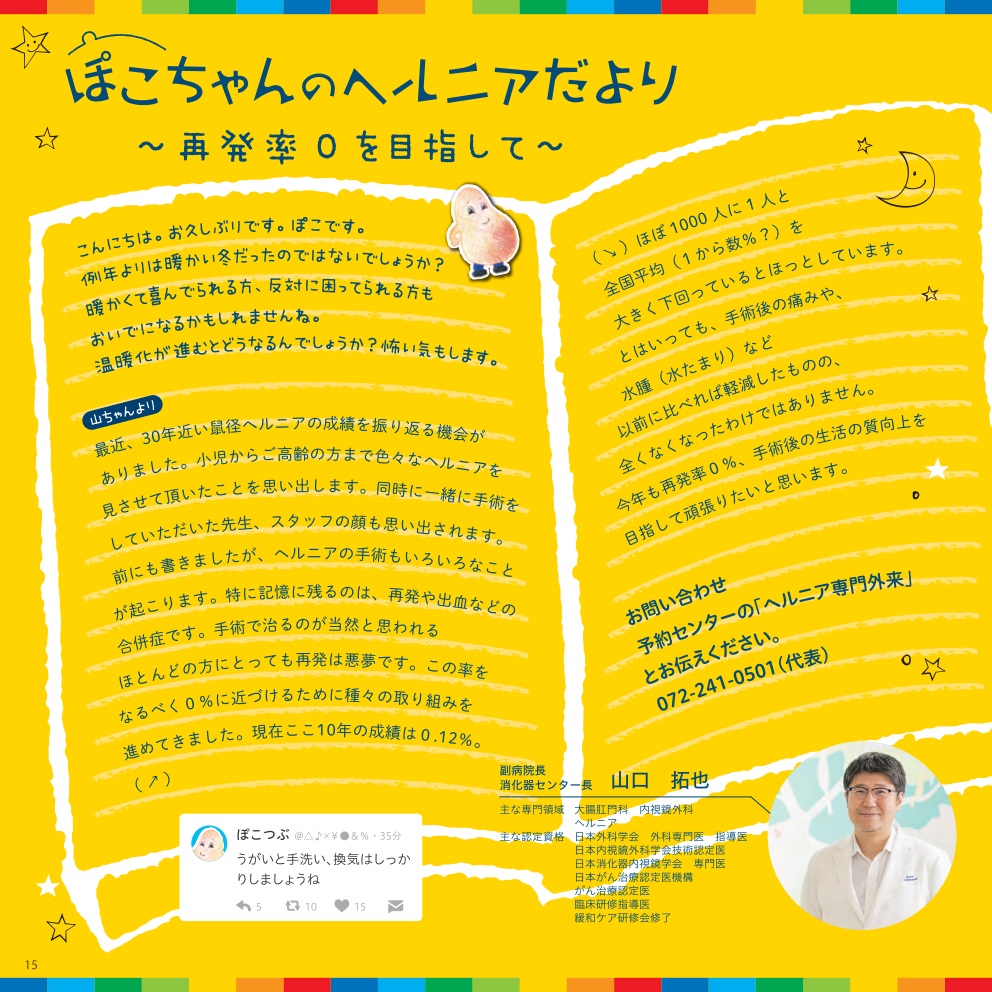 ぽこちゃんのヘルニアだより
～再発率0を目指して～
こんにちは。お久しぶりです。ぽこです。
例年よりは暖かい冬だったのではないでしょうか？
暖かくて喜んでられる方、反対に困ってられる方も
おいでになるかもしれませんね。
温暖化が進むとどうなるんでしょうか？怖い気もします。
山ちゃんより
最近、30年近い鼠径ヘルニアの成績を振り返る機会が
ありました。小児からご高齢の方まで色々なヘルニアを
見させて頂いたことを思い出します。同時に一緒に手術を
していただいた先生、スタッフの顔も思い出されます。
前にも書きましたが、ヘルニアの手術もいろいろなこと
が起こります。特に記憶に残るのは、再発や出血などの
合併症です。手術で治るのが当然と思われる
ほとんどの方にとっても再発は悪夢です。この率を
なるべく0％に近づけるために種々の取り組みを
進めてきました。現在ここ10年の成績は0.12%。
（↗）
（↘）ほぼ1000人に1人と
全国平均（1から数％？）を
大きく下回っているとほっとしています。
とはいっても、手術後の痛みや、
水腫（水たまり）など
以前に比べれば軽減したものの、
全くなくなったわけではありません。
今年も再発率0％、手術後の生活の質向上を
目指して頑張りたいと思います。
お問い合わせ
予約センターの「ヘルニア専門外来」
とお伝えください。
072-241-0501（代表）
副病院長
消化器センター長　山口　拓也
主な専門領域　大腸肛門科　内視鏡外科
ヘルニア
主な認定資格　日本外科学会　外科専門医　指導医
日本内視鏡外科学会技術認定医
日本消化器内視鏡学会　専門医
日本がん治療認定医機構
がん治療認定医
臨床研修指導医
緩和ケア研修会修了
ぽこつぶ @△♪×¥●&%・35分
うがいと手洗い、換気はしっか
りしましょうね
5 10 15
15